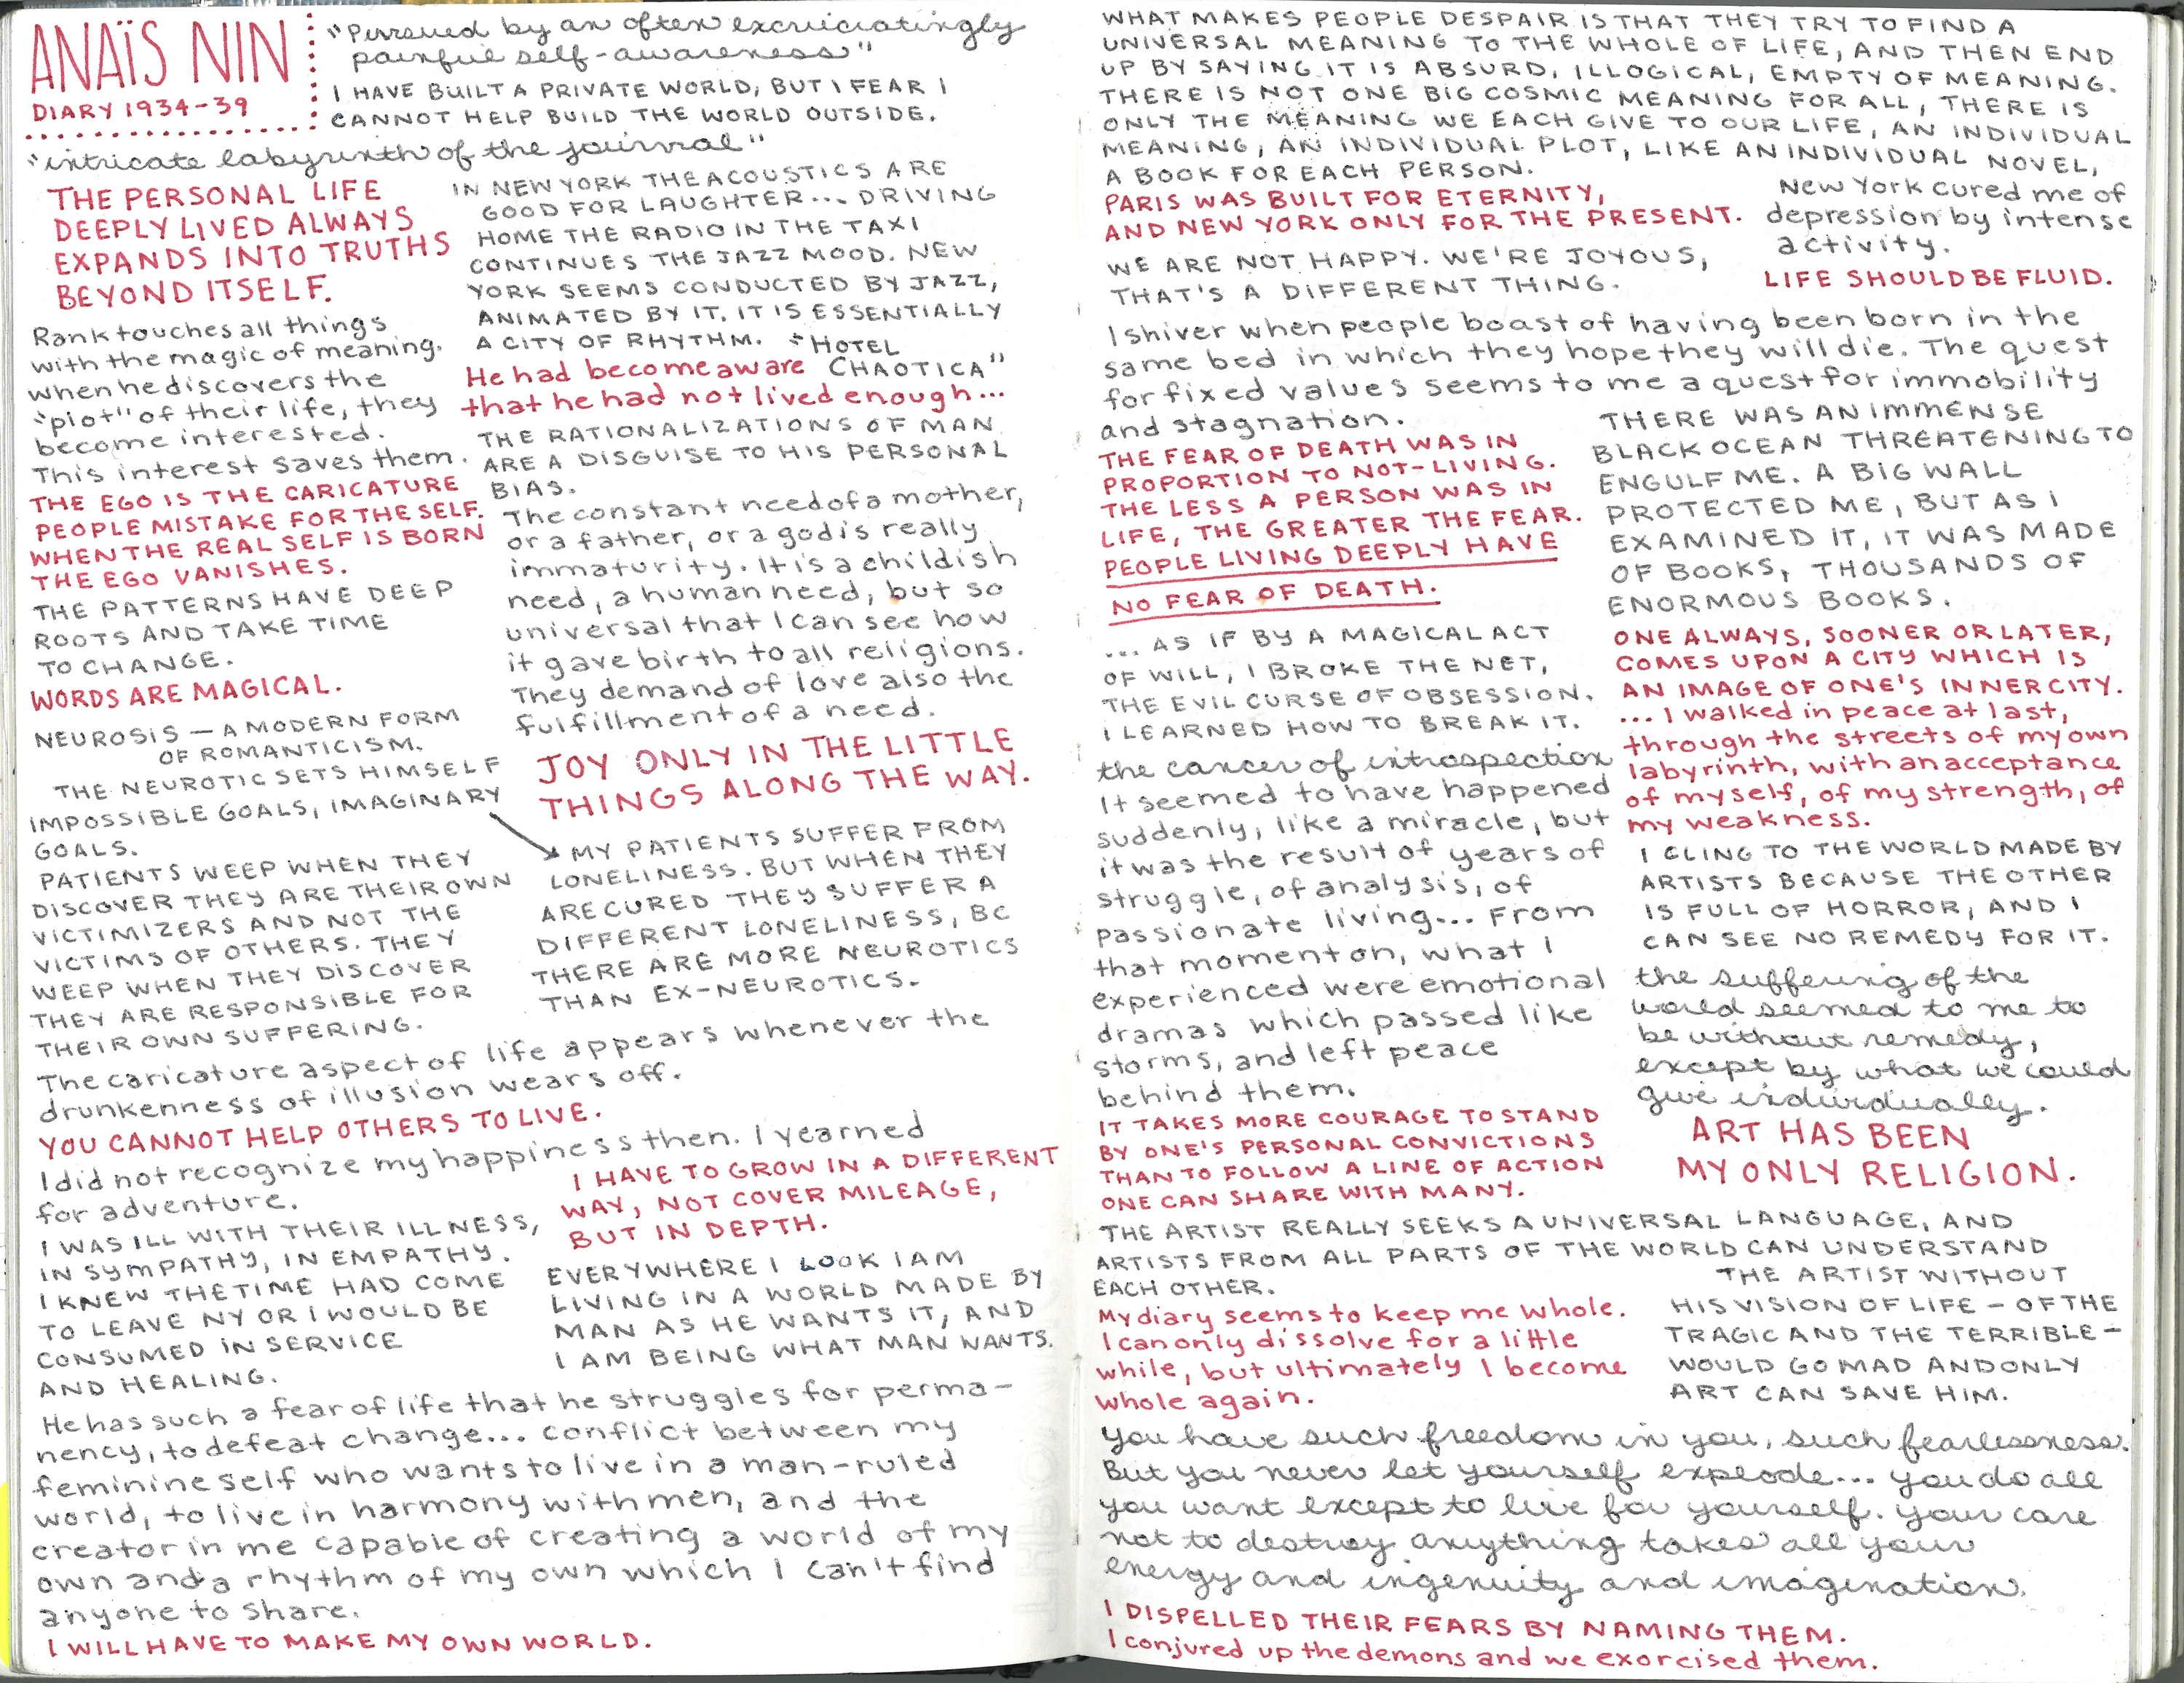 ANAÏS NIN
DIARY 1934-39
"Pursued by an often excruciatingly
painful self-awareness"
I HAVE BUILT A PRIVATE WORLD, BUT I FEAR I
CANNOT HELP BUILD THE WORLD OUTSIDE.
"intricate labyrinth of the journal"
THE PERSONAL LIFE
DEEPLY LIVED ALWAYS
EXPANDS INTO TRUTHS
BEYOND ITSELF.
Rank touches all things
with the magic of meaning.
when he discovers the
"plot" of their life, they
become interested.
This interest saves them.
THE EGO IS THE CARICATURE
PEOPLE MISTAKE FOR THE SELF.
WHEN THE REAL SELF IS BORN
THE EGO VANISHES.
THE PATTERNS HAVE DEEP
ROOTS AND TAKE TIME
TO CHANGE.
WORDS ARE MAGICAL.
NEUROSIS — A MODERN FORM
OF ROMANTICISM.
THE NEUROTIC SETS HIMSELF
IMPOSSIBLE GOALS, IMAGINARY
GOALS.
PATIENTS WEEP WHEN THEY
DISCOVER THEY ARE THEIR OWN
VICTIMIZERS AND NOT THE
VICTIMS OF OTHERS. THEY
WEEP WHEN THEY DISCOVER
THEY ARE RESPONSIBLE FOR
THEIR OWN SUFFERING.
IN NEW YORK THE ACOUSTICS ARE
GOOD FOR LAUGHTER... DRIVING
HOME THE RADIO IN THE TAXI
CONTINUES THE JAZZ MOOD. NEW
YORK SEEMS CONDUCTED BY JAZZ,
ANIMATED BY IT. IT IS ESSENTIALLY
A CITY OF RHYTHM.
"HOTEL
CHAOTICA"
He had become aware
that he had not lived enough...
THE RATIONALIZATIONS OF MAN
ARE A DISGUISE TO HIS PERSONAL
BIAS.
The constant need of a mother,
or a father, or a god is really
immaturity. It is a childish
need, a human need, but so
universal that I can see how
it gave birth to all religions.
They demand of love also the
fulfillment of a need.
JOY ONLY IN THE LITTLE
THINGS ALONG THE WAY.
MY PATIENTS SUFFER FROM
LONELINESS. BUT WHEN THEY
ARE CURED THEY SUFFER A
DIFFERENT LONELINESS, BC
THERE ARE MORE NEUROTICS
THAN EX-NEUROTICS.
The caricature aspect of life appears whenever the
drunkenness of illusion wears off.
YOU CANNOT HELP OTHERS TO LIVE.
I did not recognize my happiness then. I yearned
for adventure.
I WAS ILL WITH THEIR ILLNESS,
IN SYMPATHY, IN EMPATHY.
I KNEW THE TIME HAD COME
TO LEAVE NY OR I WOULD BE
CONSUMED IN SERVICE
AND HEALING.
I HAVE TO GROW IN A DIFFERENT
WAY, NOT COVER MILEAGE,
BUT IN DEPTH.
EVERYWHERE I LOOK I AM
LIVING IN A WORLD MADE BY
MAN AS HE WANTS IT, AND
I AM BEING WHAT MAN WANTS.
He has such a fear of life that he struggles for perma-
nency, to defeat change... conflict between my
feminine self who wants to live in a man-ruled
world, to live in harmony with men, and the
creator in me capable of creating a world of my
own and a rhythm of my own which I can't find
anyone to share.
I WILL HAVE TO MAKE MY OWN WORLD.
WHAT MAKES PEOPLE DESPAIR IS THAT THEY TRY TO FIND A
UNIVERSAL MEANING TO THE WHOLE OF LIFE, AND THEN END
UP BY SAYING IT IS ABSURD, ILLOGICAL, EMPTY OF MEANING.
THERE IS NOT ONE BIG COSMIC MEANING FOR ALL, THERE IS
ONLY THE MEANING WE EACH GIVE TO OUR LIFE, AN INDIVIDUAL
MEANING, AN INDIVIDUAL PLOT, LIKE AN INDIVIDUAL NOVEL,
A BOOK FOR EACH PERSON.
PARIS WAS BUILT FOR ETERNITY,
AND NEW YORK ONLY FOR THE PRESENT.
New York cured me of
depression by intense
activity.
WE ARE NOT HAPPY. WE'RE JOYOUS,
THAT'S A DIFFERENT THING.
LIFE SHOULD BE FLUID.
I shiver when people boast of having been born in the
same bed in which they hope they will die. The quest
for fixed values seems to me a quest for immobility
and stagnation.
THE FEAR OF DEATH WAS IN
PROPORTION TO NOT-LIVING.
THE LESS A PERSON WAS IN
LIFE, THE GREATER THE FEAR.
PEOPLE LIVING DEEPLY HAVE
NO FEAR OF DEATH.
... AS IF BY A MAGICAL ACT
OF WILL, I BROKE THE NET,
THE EVIL CURSE OF OBSESSION.
I LEARNED HOW TO BREAK IT.
the cancer of introspection
It seemed to have happened
suddenly, like a miracle, but
it was the result of years of
struggle, of analysis, of
passionate living... From
that moment on, what I
experienced were emotional
dramas which passed like
storms, and left peace
behind them.
IT TAKES MORE COURAGE TO STAND
BY ONE'S PERSONAL CONVICTIONS
THAN TO FOLLOW A LINE OF ACTION
ONE CAN SHARE WITH MANY.
THERE WAS AN IMMENSE
BLACK OCEAN THREATENING TO
ENGULF ME. A BIG WALL
PROTECTED ME, BUT AS I
EXAMINED IT, IT WAS MADE
OF BOOKS, THOUSANDS OF
ENORMOUS BOOKS.
ONE ALWAYS, SOONER OR LATER,
COMES UPON A CITY WHICH IS
AN IMAGE OF ONE'S INNER CITY.
... I walked in peace at last,
through the streets of my own
labyrinth, with an acceptance
of myself, of my strength, of
my weakness.
I CLING TO THE WORLD MADE BY
ARTISTS BECAUSE THE OTHER
IS FULL OF HORROR, AND I
CAN SEE NO REMEDY FOR IT.
the suffering of the
world seemed to me to
be without remedy,
except by what we could
give individually.
ART HAS BEEN
MY ONLY RELIGION.
THE ARTIST REALLY SEEKS A UNIVERSAL LANGUAGE, AND
ARTISTS FROM ALL PARTS OF THE WORLD CAN UNDERSTAND
EACH OTHER.
My diary seems to keep me whole.
I can only dissolve for a little
while, but ultimately I become
whole again.
THE ARTIST WITHOUT
HIS VISION OF LIFE — OF THE
TRAGIC AND THE TERRIBLE —
WOULD GO MAD AND ONLY
ART CAN SAVE HIM.
You have such freedom in you, such fearlessness.
But you never let yourself explode... You do all
you want except to live for yourself. Your care
not to destroy anything takes all your
energy and ingenuity and imagination.
I DISPELLED THEIR FEARS BY NAMING THEM.
I conjured up the demons and we exorcised them.